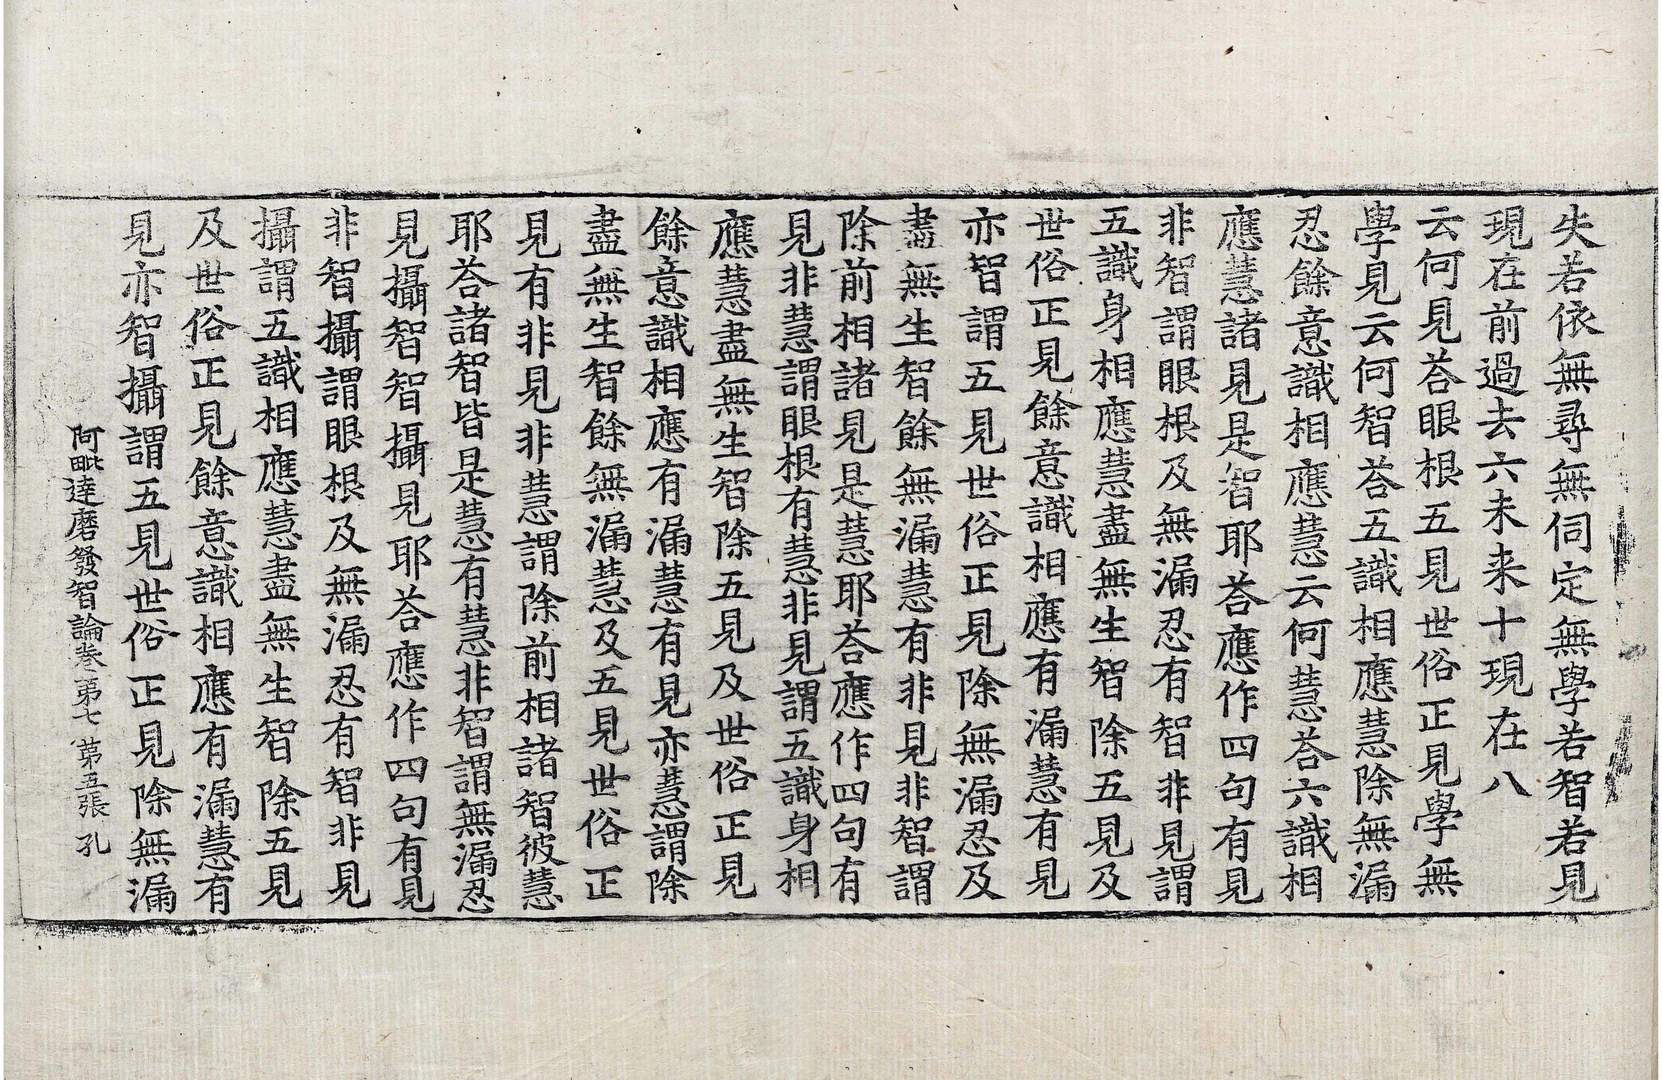 失若依無尋無伺定無學若智若見
現在前過去六未来十現在八
云何見荅眼根五見世俗正見學無
學見云何智荅五識相應慧除無漏
忍餘意識相應慧云何慧荅六識相
應慧諸見是智耶荅應作四句有見
非智謂眼根及無漏忍有智非見謂
五識身相應慧盡無生智除五見及
世俗正見餘意識相應有漏慧有見
亦智謂五見世俗正見除無漏忍及
盡無生智餘無漏慧有非見非智謂
除前相諸見是慧耶荅應作四句有
見非慧謂眼根有慧非見謂五識身相
應慧盡無生智除五見及世俗正見
餘意識相應有漏慧有見亦慧謂除
盡無生智餘無漏慧及五見世俗正
見有非見非慧謂除前相諸智彼慧
耶荅諸智皆是慧有慧非智謂無漏忍
見攝智智攝見耶荅應作四句有見
非智攝謂眼根及無漏忍有智非見
攝謂五識相應慧盡無生智除五見
及世俗正見餘意識相應有漏慧有
見亦智攝謂五見世俗正見除無漏
阿毗達磨發智論卷第七 第五張 孔